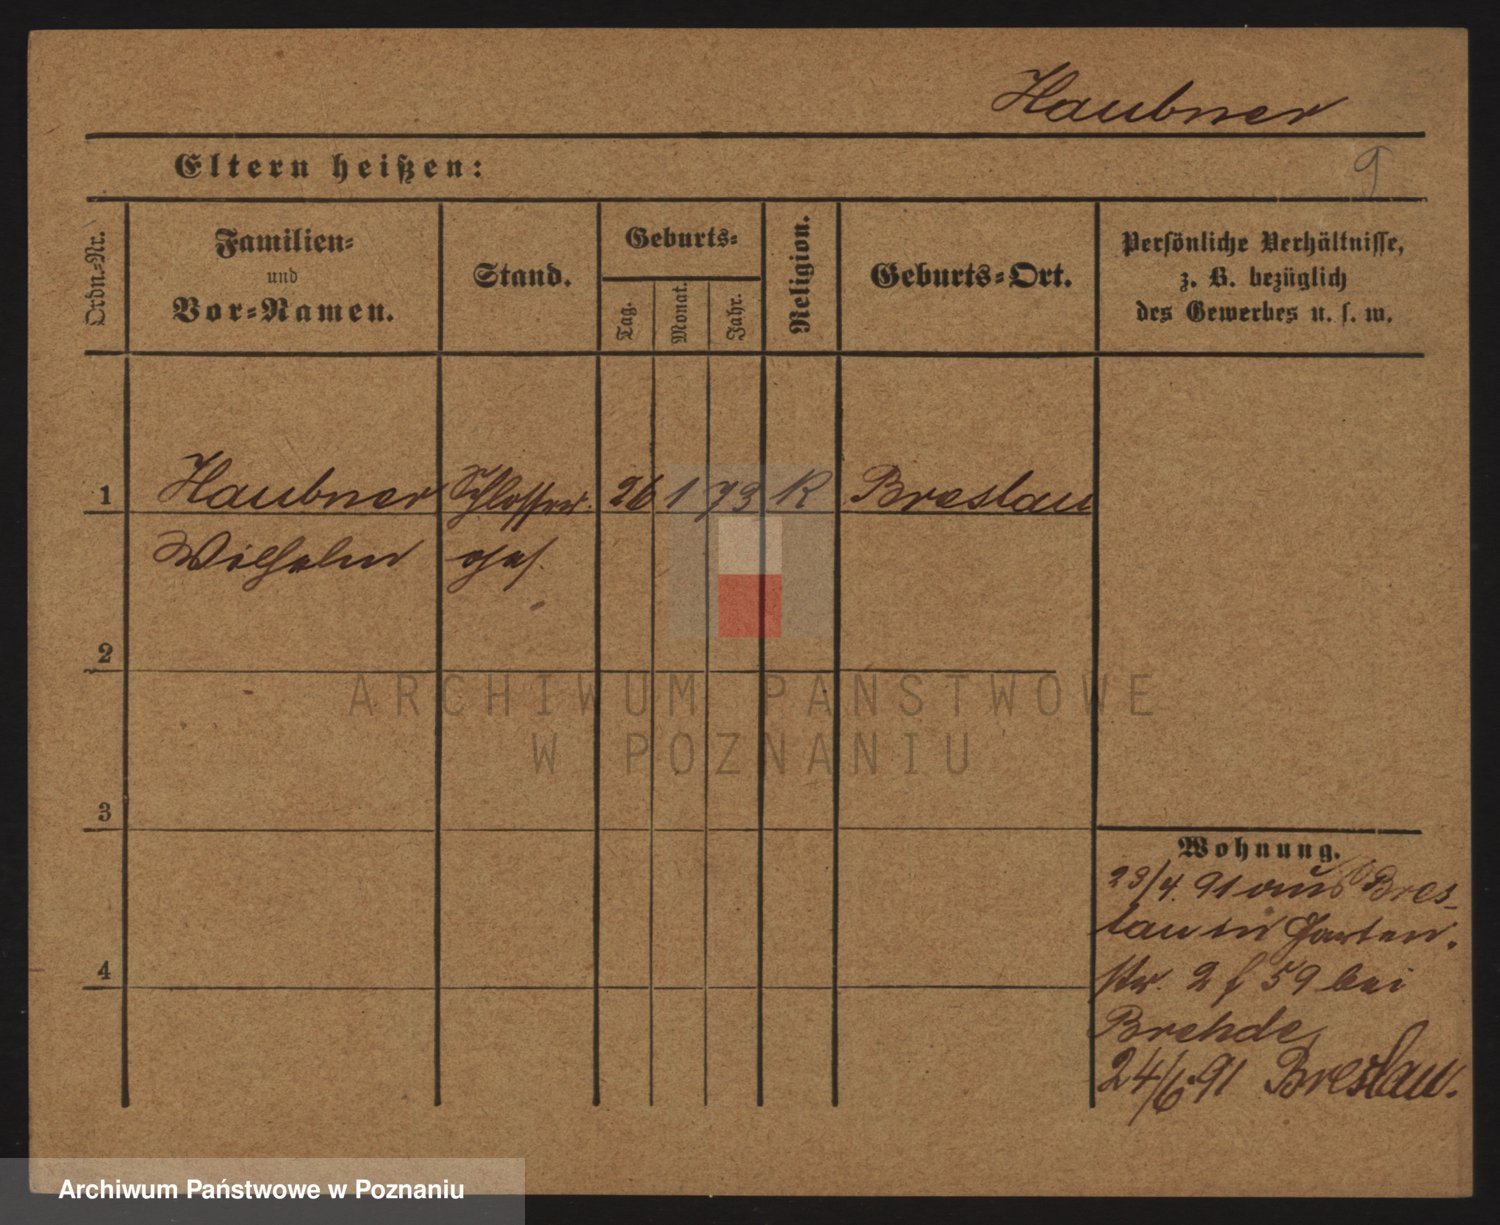 Haubner
Eltern heißen:
9
Ordn.=Nr.
Familien=
und
Vor=Namen.
Stand.
Geburts=
Tag.
Monat.
Jahr.
Religion.
Geburts=Ort.
Persönliche Verhältnisse,
z. B. bezüglich
des Gewerbes u. s. w.
1 Haubner Schlosser 26 1 73 K Breslau
Wilhelm ges.
2
ARCHIWUM PAŃSTWOWE
W POZNANIU
3
Wohnung.
23/4. 91 aus Bres-
lau in Garten.
str. 2 f 59 bei
4
Brehde
24/6. 91 Breslau.
Archiwum Państwowe w Poznaniu